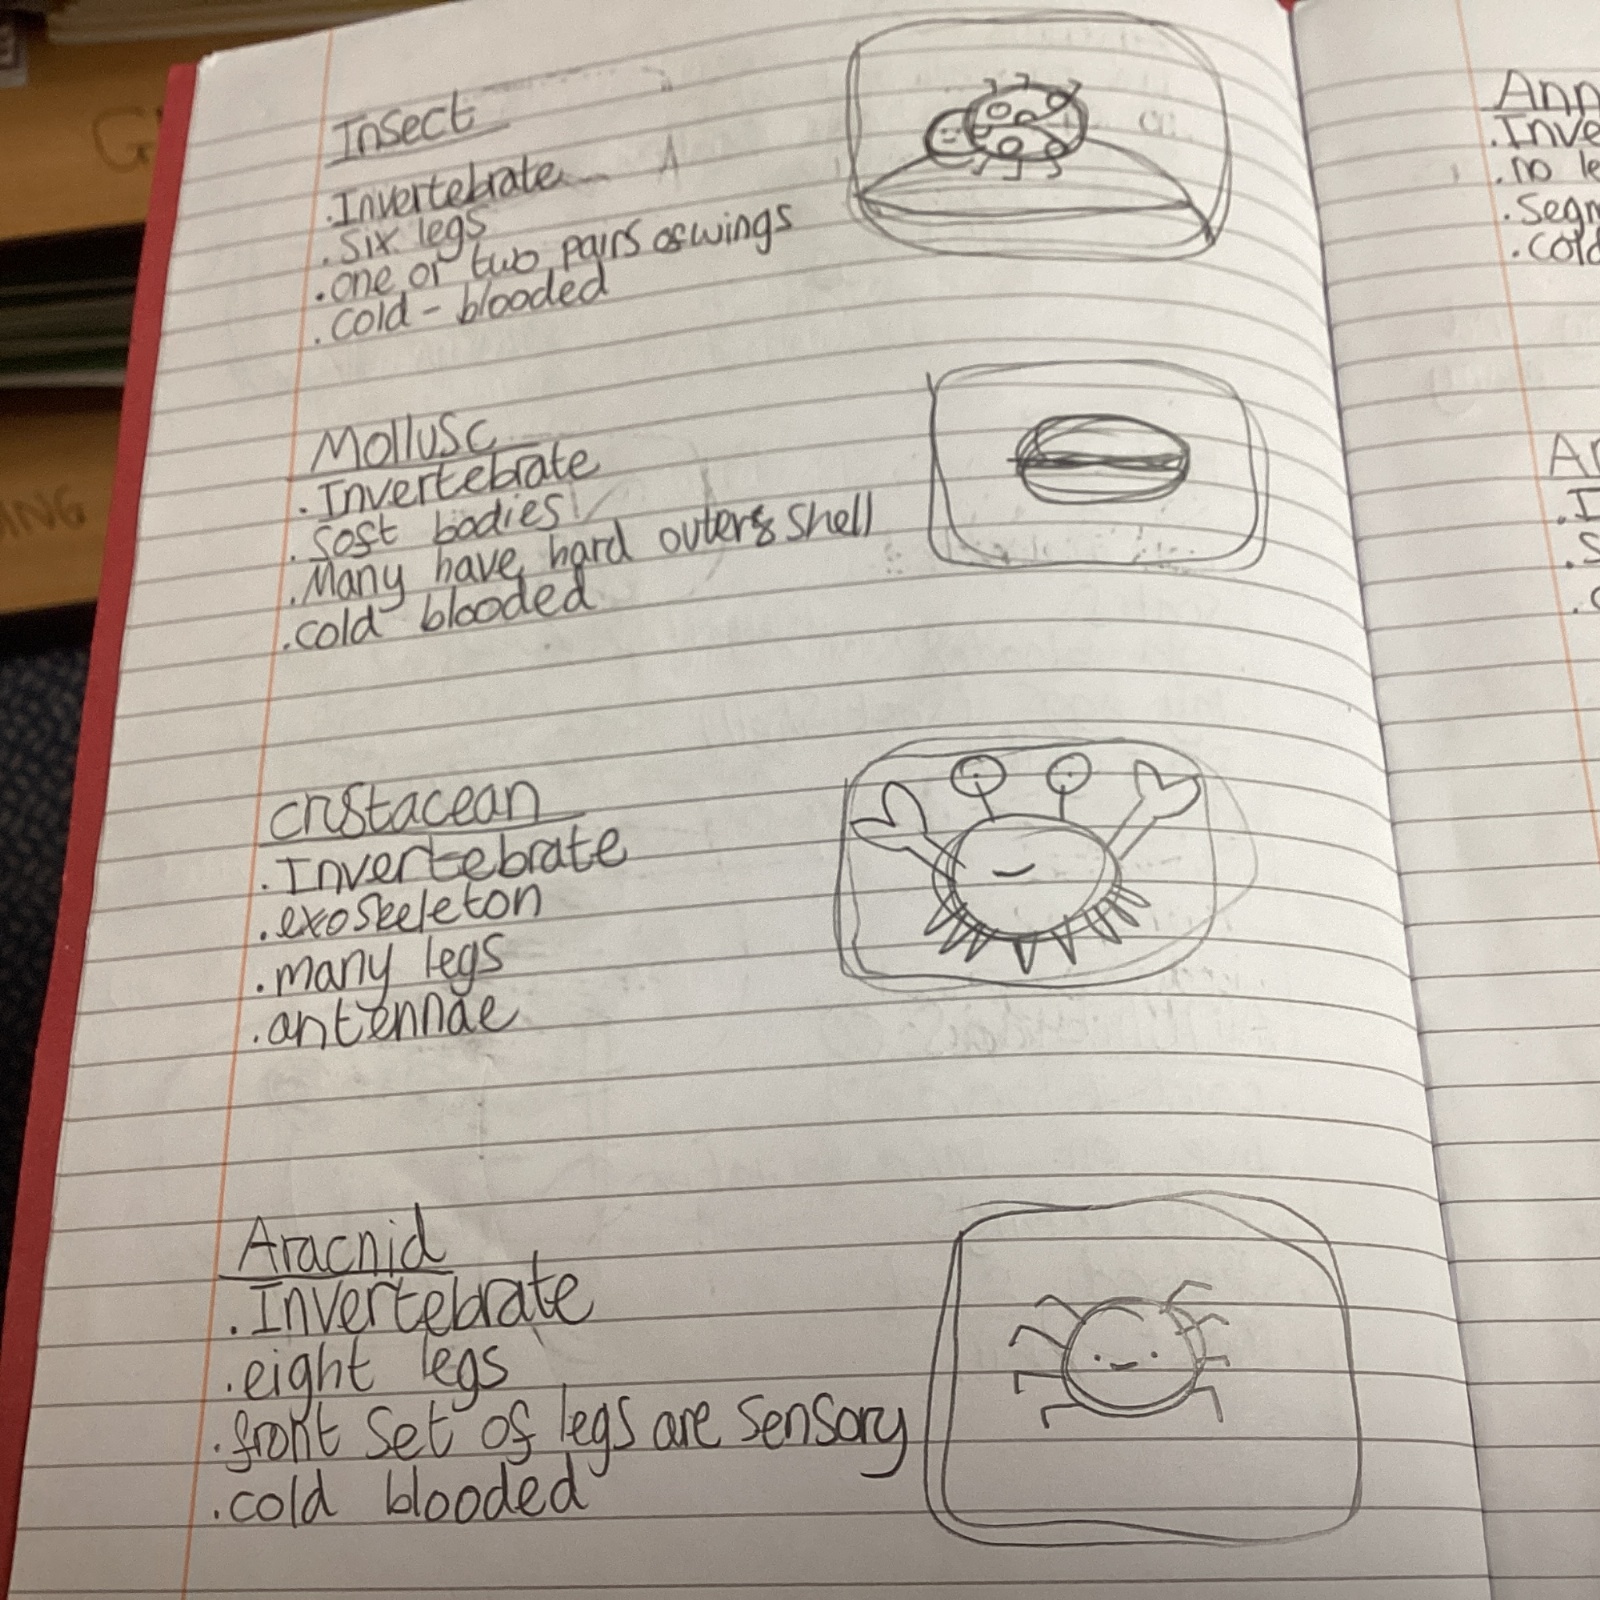 Insect
.Invertebrate
.six legs
.one or two pairs oswings
.cold-blooded
Mollusc
.Invertebrate
.sost bodies
.Many have hard outer shell
.cold blooded
crustacean
.Invertebrate
.exoskeleton
.many legs
.antennae
Aracnid
.Invertebrate
.eight legs
.front set of legs are sensory
.cold blooded
Ann
.Inve
.no le
.segm
.cold
Ar
.I
.S
.c